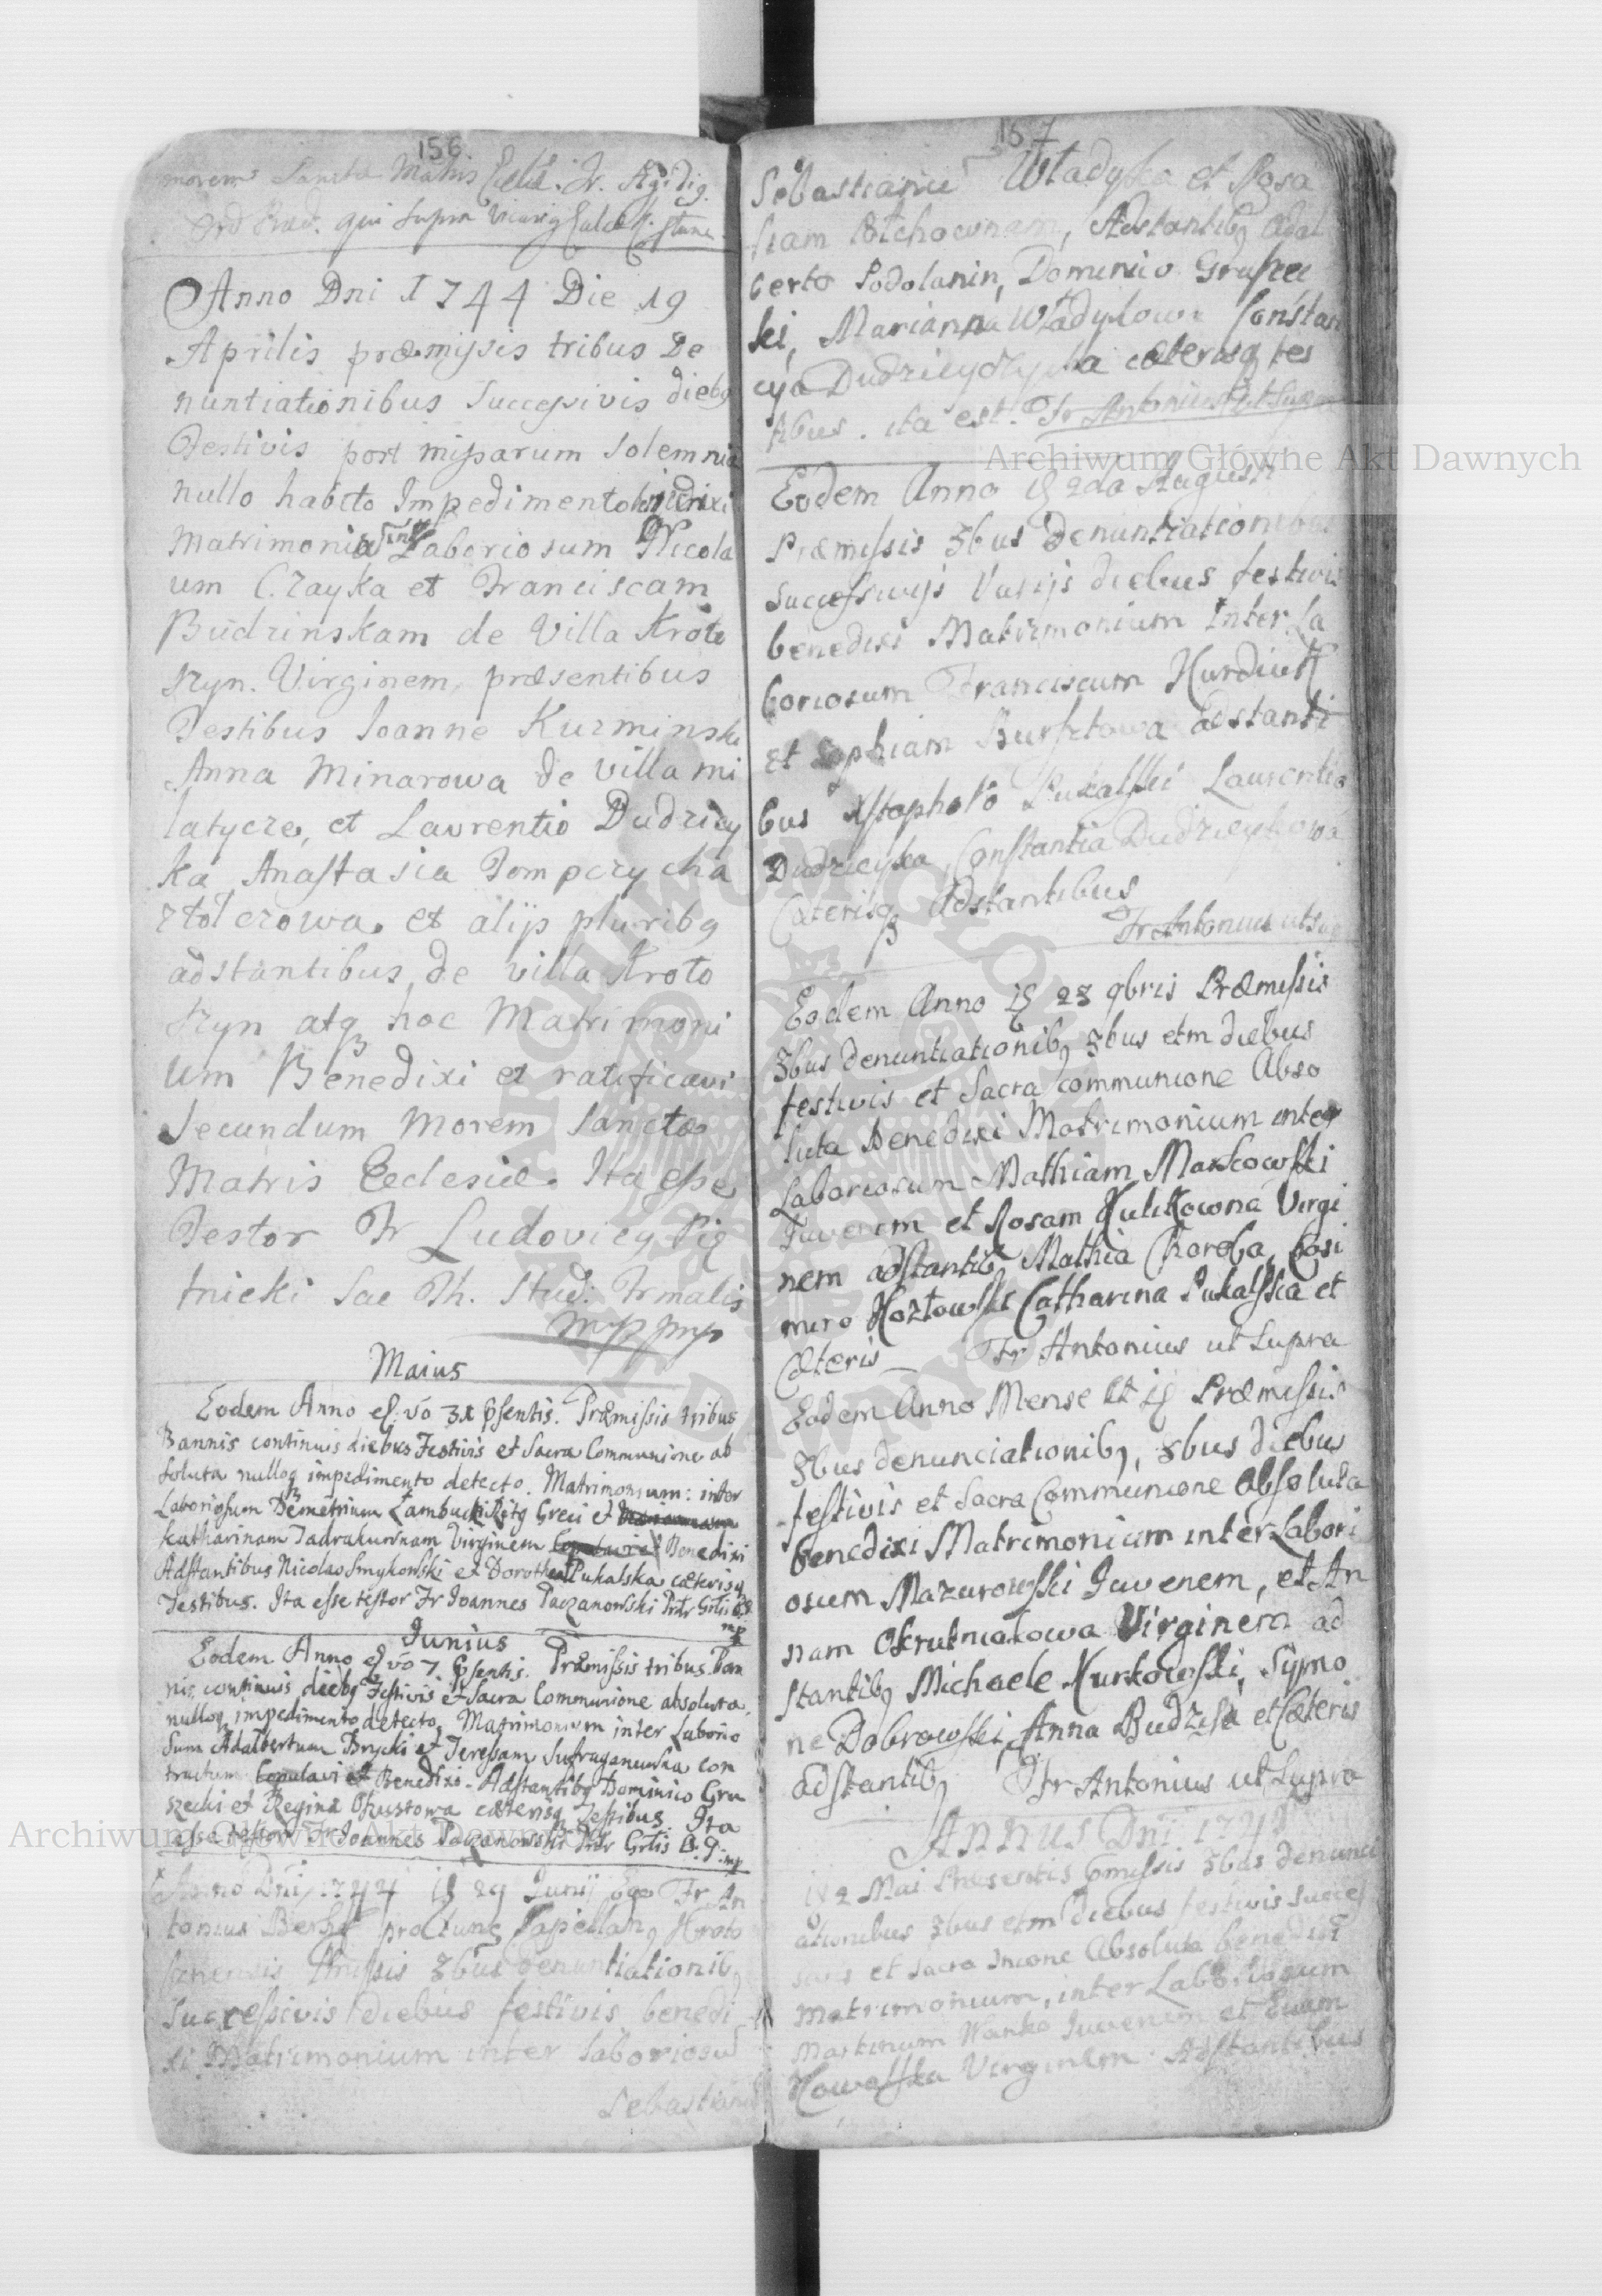 156
morem Sanctæ Matris Eccliæ. Fr.
Ord Præd. qui supra
Anno Dni 1744 Die 19
Aprilis præmissis tribus De
nuntiationibus Successivis dieb9
Festivis post missarum solemnia
nullo habito Impedimento
Matrimoniũ int Laboriosum Nicola
um Czayka et Franciscam
Budzinskam de Villa Kroto
szyn. Virginem, præsentibus
Testibus Joanne Kuzminski
Anna Minarowa de villa mi
latycze, et Laurentio Dudzicy
ka, Anastasia Pompczycha
et alijs plurib9
adstantibus de villa Kroto
szyn atq hoc Matrimoni
um Benedixi et ratificavi
Secundum Morem Sanctæ
Matris Ecclesiæ. Ita esse
Testor Fr Ludovic9 Pią
tnicki Sac Th. Stud: Frmalis
mp
Maius
Eodem Anno 31 Psentis. Præmissis tribus
Bannis continuis diebus Festivis et Sacra Communione ab
soluta nulloq impedimento detecto. Matrimonium: inter
Laboriosum Demetrium Lambucki Rit9 Greci et
Katharinam Jadrakuwnam Virginem Benedixi
Adstantibus Nicolao Smykowski et Dorothea Pukalska cæterisq
Testibus. Ita esse testor Fr Joannes Paczanowski
mp
Junius
Eodem Anno 7 Psentis. Præmissis tribus Ban
nis continuis dieb9 Festivis et Sacra Communione absoluta
nulloq impedimento detecto, Matrimonium inter Laborio
sum Adalbertum Brycki et Teressam Sufraganewska con
tractum Copulavi et Benedixi. Adstantib9 Dominico Gru
szecki et Regina cæterisq Testibus. Ita
esse testor Fr Joannes Paczanowski
Anno Dni 1744 29 Junij Ego Fr An
tonius pro tunc Capellan9 Kroto
szynensis Pmissis 3bus denuntiationib9
Successivis diebus festivis benedi
xi Matrimonium inter laboriosũ
Sebastianũ
157
Sebastianũ Władyka et Rosa
liam Adstantib9 Adal
berto Podolanin, Dominico Gruszec
ki, Marianna Władykowa Constan
cya cæterisq tes
tibus. ita est. Fr Antonius ut supra
Eodem Anno 2da Augusti
Præmissis 3bus Denuntiationibus
successivijs Varijs diebus festivis
benedixi Matrimonium Inter La
boriosum Franciscum
et Sophiam Adstanti
bus Xstophoro Pukalski Laurentio
Dudzicyka, Constantia Dudzicykowa
Cæterisq Adstantibus
Fr Antonius ut supra
Eodem Anno 23 9bris Præmissis
3bus denuntiationib9 3bus etm diebus
festivis et Sacra communione Abso
luta Benedixi Matrimonium inter
Laboriosum Mathiam Markowski
Juvenem et Rosam Kulikowna Virgi
nem adstantib9 Mathia Choroba, Casi
miro Kozłowski Catharina Pukalska et
Cæteris Fr Antonius ut supra
Eodem Anno Mense Et Præmissis
3bus denunciationib9, 3bus diebus
festivis et Sacra Communione Absoluta
benedixi Matrimonium inter Labori
osum Mazurowski Juvenem, et An
nam Okrutniakowa Virginem ad
stantib9 Michaele Kurkowski, Symo
ne Dobrowski, Anna et Cæteris
adstantib9 Fr Antonius ut supra
Annus Dni
2 Mai Præsentis Pmissis 3bus denunci
ationibus 3bus etm diebus festivis succes
sivis et Sacra Absoluta benedixi
Matrimonium, inter Laboriosum
Martinum Wanko Juvenem et Evam
Kowalska Virginem. Adstantibus
Archiwum Główne Akt Dawnych
Archiwum Główne Akt Dawnych
ARCHIWUM GŁÓWNE AKT DAWNYCH